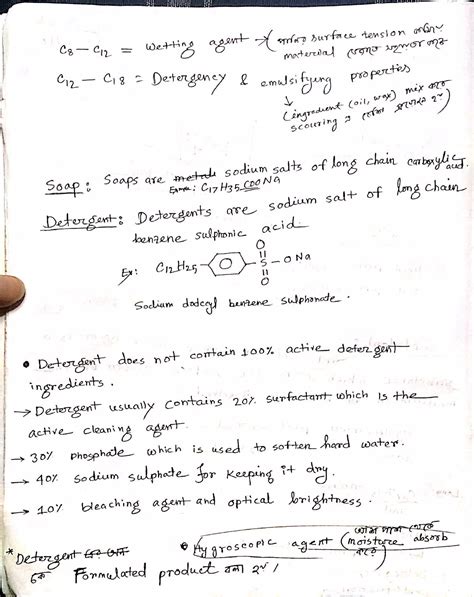 C8 – C12 = Wetting agent → surface tension
material
C12 – C18 = Detergency & emulsifying properties
↓
(ingredient (oil, wax) mix করে
scouring এ
Soap: Soaps are sodium salts of long chain carboxylic acid.
Exm: C17H35COONa
Detergent: Detergents are sodium salt of long chain
benzene sulphonic acid
O
Ex: C12H25 – S – ONa
O
Sodium dodcyl benzene sulphonate.
• Detergent does not contain 100% active detergent
ingredients.
→ Detergent usually contains 20% surfactant which is the
active cleaning agent
→ 30% phosphate which is used to soften hard water.
→ 40% sodium sulphate for keeping it dry.
→ 10% bleaching agent and optical brightness.
• Hygroscopic agent (moisture absorb
করে)
* Detergent
কে Formulated product বলা হয়।